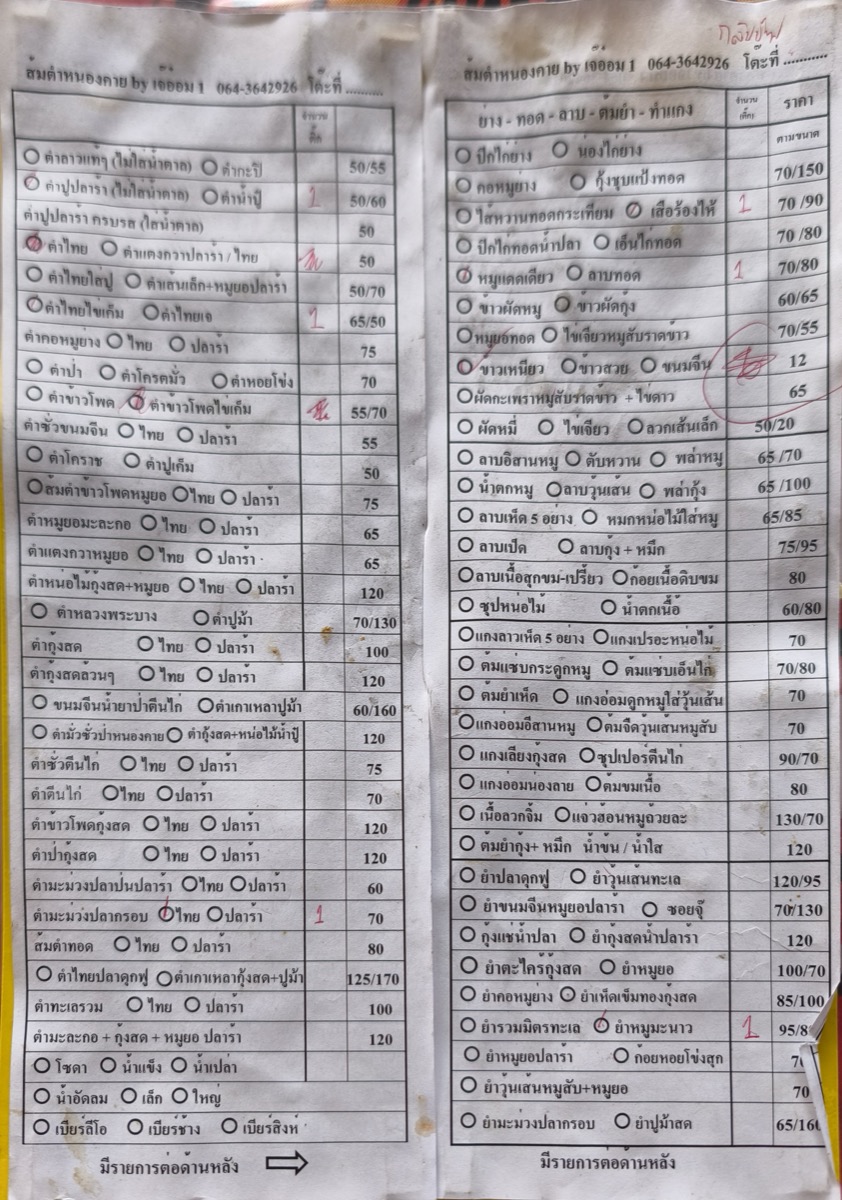 ส้มตำหนองคาย by เจ๊อ้อม 1 064-3642926 โต๊ะที่ ..........
จำนวน
ติ๊ก
ตำลาวแท้ๆ (ไม่ใส่น้ำตาล) ตำกะปิ 50/55
ตำปูปลาร้า (ไม่ใส่น้ำตาล) ตำน้ำปู๋ 1 50/60
ตำปูปลาร้า ครบรส (ใส่น้ำตาล) 50
ตำไทย ตำแตงกวาปลาร้า / ไทย 50
ตำไทยใส่ปู ตำเส้นเล็ก+หมูยอปลาร้า 50/70
ตำไทยไข่เค็ม ตำไทยเจ 1 65/50
ตำคอหมูย่าง ไทย ปลาร้า 75
ตำป่า ตำโครตมั่ว ตำหอยโข่ง 70
ตำข้าวโพด ตำข้าวโพดไข่เค็ม 55/70
ตำซั่วขนมจีน ไทย ปลาร้า 55
ตำโคราช ตำปูเค็ม 50
ส้มตำข้าวโพดหมูยอ ไทย ปลาร้า 75
ตำหมูยอมะละกอ ไทย ปลาร้า 65
ตำแตงกวาหมูยอ ไทย ปลาร้า 65
ตำหน่อไม้กุ้งสด+หมูยอ ไทย ปลาร้า 120
ตำหลวงพระบาง ตำปูม้า 70/130
ตำกุ้งสด ไทย ปลาร้า 100
ตำกุ้งสดล้วนๆ ไทย ปลาร้า 120
ขนมจีนน้ำยาป่าตีนไก่ ตำเกาเหลาปูม้า 60/160
ตำมั่วซั่วป่าหนองคาย ตำกุ้งสด+หน่อไม้น้ำปู๋ 120
ตำซั่วตีนไก่ ไทย ปลาร้า 75
ตำตีนไก่ ไทย ปลาร้า 70
ตำข้าวโพดกุ้งสด ไทย ปลาร้า 120
ตำป่ากุ้งสด ไทย ปลาร้า 120
ตำมะม่วงปลาป่นปลาร้า ไทย ปลาร้า 60
ตำมะม่วงปลากรอบ ไทย ปลาร้า 1 70
ส้มตำทอด ไทย ปลาร้า 80
ตำไทยปลาดุกฟู ตำเกาเหลากุ้งสด+ปูม้า 125/170
ตำทะเลรวม ไทย ปลาร้า 100
ตำมะละกอ + กุ้งสด + หมูยอ ปลาร้า 120
โซดา น้ำแข็ง น้ำเปล่า
น้ำอัดลม เล็ก ใหญ่
เบียร์ลีโอ เบียร์ช้าง เบียร์สิงห์
มีรายการต่อด้านหลัง
กลับบ้าน
ส้มตำหนองคาย by เจ๊อ้อม 1 064-3642926 โต๊ะที่ ...........
ย่าง - ทอด - ลาบ - ต้มยำ - ทำแกง จำนวน (ติ๊ก) ราคา
ปีกไก่ย่าง น่องไก่ย่าง ตามขนาด
คอหมูย่าง กุ้งชุบแป้งทอด 70/150
ไส้หวานทอดกระเทียม เสือร้องไห้ 1 70 /90
ปีกไก่ทอดน้ำปลา เอ็นไก่ทอด 70 /80
หมูแดดเดียว ลาบทอด 1 70/80
ข้าวผัดหมู ข้าวผัดกุ้ง 60/65
หมูยอทอด ไข่เจียวหมูสับราดข้าว 70/55
ข้าวเหนียว ข้าวสวย ขนมจีน 12
ผัดกะเพราหมูสับราดข้าว + ไข่ดาว 65
ผัดหมี่ ไข่เจียว ลวกเส้นเล็ก 50/20
ลาบอีสานหมู ตับหวาน พล่าหมู 65 /70
น้ำตกหมู ลาบวุ้นเส้น พล่ากุ้ง 65 /100
ลาบเห็ด 5 อย่าง หมกหน่อไม้ใส่หมู 65/85
ลาบเป็ด ลาบกุ้ง + หมึก 75/95
ลาบเนื้อสุกขม-เปรี้ยว ก้อยเนื้อดิบขม 80
ซุปหน่อไม้ น้ำตกเนื้อ 60/80
แกงลาวเห็ด 5 อย่าง แกงเปรอะหน่อไม้ 70
ต้มแซ่บกระดูกหมู ต้มแซ่บเอ็นไก่ 70/80
ต้มยำเห็ด แกงอ่อมดูกหมูใส่วุ้นเส้น 70
แกงอ่อมอีสานหมู ต้มจืดวุ้นเส้นหมูสับ 70
แกงเลียงกุ้งสด ซุปเปอร์ตีนไก่ 90/70
แกงอ่อมน่องลาย ต้มขมเนื้อ 80
เนื้อลวกจิ้ม แจ่วฮ้อนหมูถ้วยละ 130/70
ต้มยำกุ้ง+ หมึก น้ำข้น / น้ำใส 120
ยำปลาดุกฟู ยำวุ้นเส้นทะเล 120/95
ยำขนมจีนหมูยอปลาร้า ซอยจุ๊ 70/130
กุ้งแช่น้ำปลา ยำกุ้งสดน้ำปลาร้า 120
ยำตะไคร้กุ้งสด ยำหมูยอ 100/70
ยำคอหมูย่าง ยำเห็ดเข็มทองกุ้งสด 85/100
ยำรวมมิตรทะเล ยำหมูมะนาว 1 95/8
ยำหมูยอปลาร้า ก้อยหอยโข่งสุก
ยำวุ้นเส้นหมูสับ+หมูยอ 70
ยำมะม่วงปลากรอบ ยำปูม้าสด 65/160
มีรายการต่อด้านหลัง